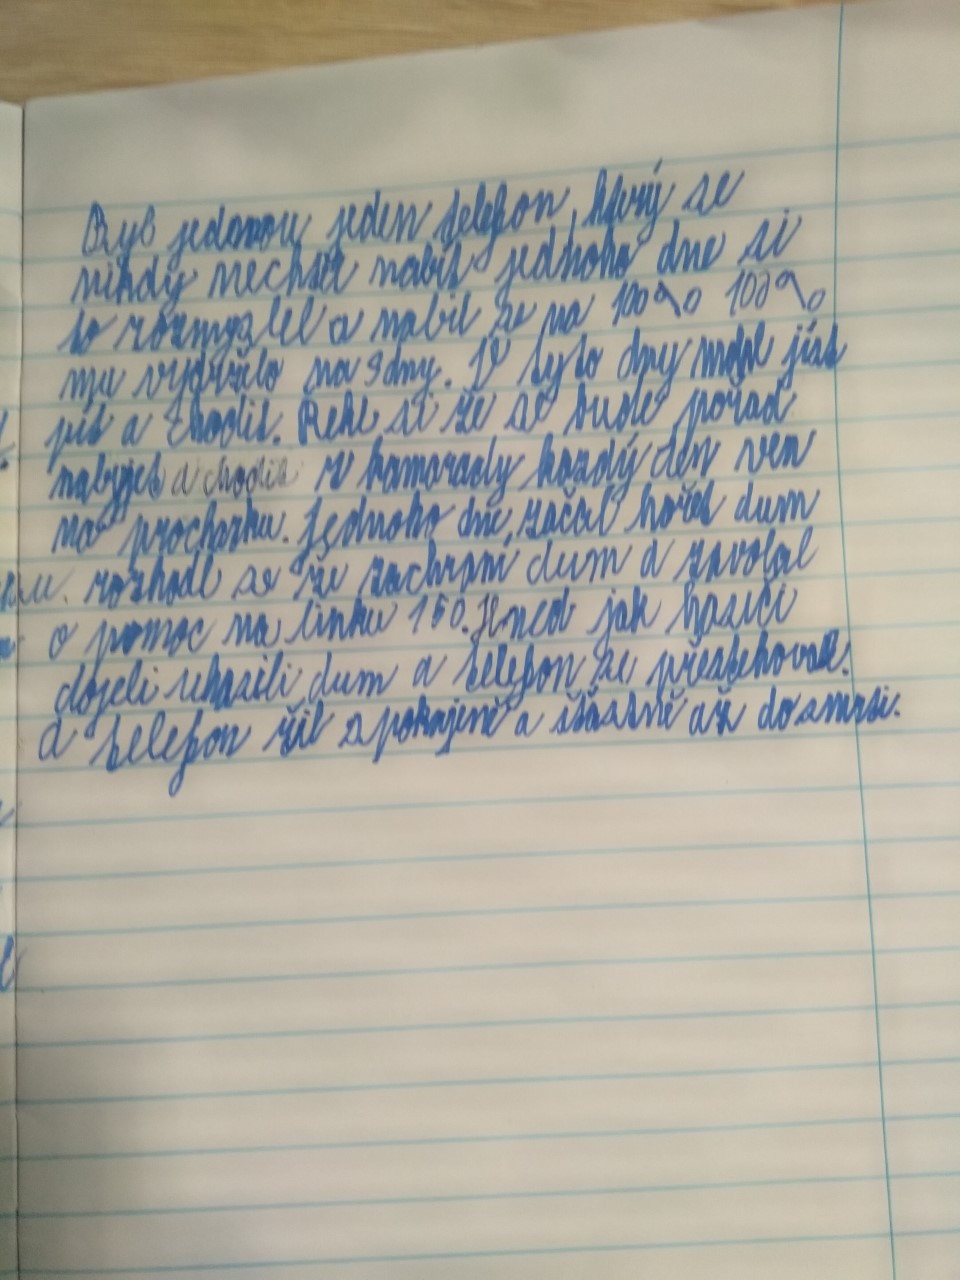 Byl jedonou jeden telefon, který se
nikdy nechtěl nabít jednoho dne si
to rozmyslel a nabil se na 100% 100%
mu vydrželo na 9 dny. V tyto dny mohl jíst
pít a chodit. Řekl si že se bude pořád
nabyjet a chodit z kamarady každý den ven
na procházku. Jednoho dne, začal hořet dum
rozhodl se že zachrání dum a zavolal
o pomoc na linku 150. Hned jak hasiči
dojeli uhasili dum a telefon se přestěhoval.
a telefon žil spokojeně a šťastně až do smrti.